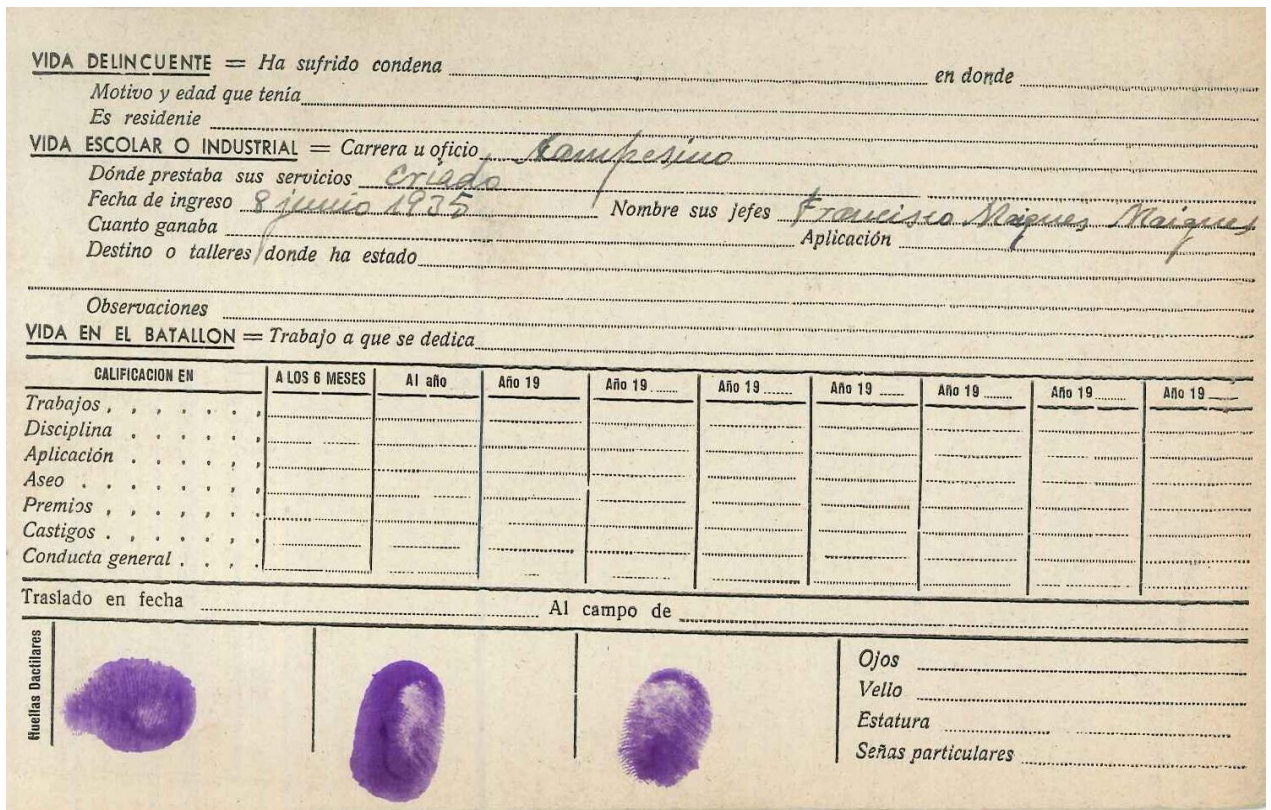 VIDA DELINCUENTE = Ha sufrido condena en donde
Motivo y edad que tenía
Es residenie
VIDA ESCOLAR O INDUSTRIAL = Carrera u oficio Kampesino
Dónde prestaba sus servicios criado
Fecha de ingreso 8 junio 1935 Nombre sus jefes Francisco Maiques Maiques
Cuanto ganaba Aplicación
Destino o talleres donde ha estado
Observaciones
VIDA EN EL BATALLON = Trabajo a que se dedica
CALIFICACION EN A LOS 6 MESES Al año Año 19 Año 19 Año 19 Año 19 Año 19 Año 19 Año 19
Trabajos
Disciplina
Aplicación
Aseo
Premios
Castigos
Conducta general
Traslado en fecha Al campo de
Huellas Dactilares
Ojos
Vello
Estatura
Señas particulares